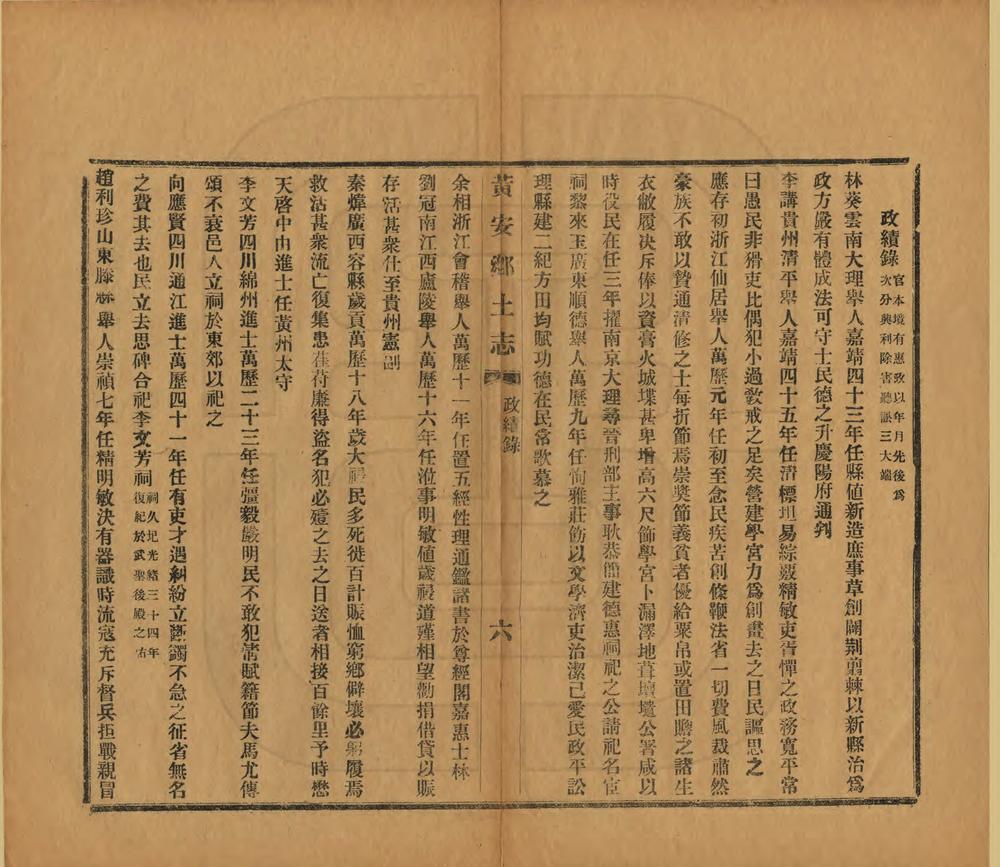 政績錄官本境有惠政以年月先後爲次分興利除害聽訟三大端
林葵雲南大理舉人嘉靖四十三年任縣值新造庶事草創闢荆翦棘以新縣治爲
政方嚴有體成法可守士民德之升慶陽府通判
李講貴州清平舉人嘉靖四十五年任清標坦易綜覈精敏吏胥憚之政務寬平常
曰愚民非猾吏比偶犯小過敎戒之足矣營建學宮力爲創畫去之日民謳思之
應存初浙江仙居舉人萬歷元年任初至念民疾苦創條鞭法省一切費風裁肅然
豪族不敢以贄通清修之士每折節焉崇奬節義貧者優給粟帛或置田贍之諸生
衣敝履决斥俸以資膏火城堞甚卑增高六尺飾學宮卜漏澤地葺壇壝公署咸以
時役民在任三年擢南京大理尋晉刑部主事耿恭簡建德惠祠祀之公請祀名宦
祠黎來玉廣東順德舉人萬歷九年任恂雅莊飭以文學濟吏治潔己愛民政平訟
理縣建二紀方田均賦功德在民常歌慕之
黃安鄉土志
政績錄
六
余相浙江會稽舉人萬歷十一年任置五經性理通鑑諸書於尊經閣嘉惠士林
劉冠南江西廬陵舉人萬歷十六年任涖事明敏値歲祲道殣相望勸捐借貸以賑
存活甚衆仕至貴州憲副
秦煒廣西容縣歲貢萬歷十八年歲大祲民多死徙百計賑恤窮鄉僻壤必躬履焉
救活甚衆流亡復集患萑苻廉得盜名犯必殪之去之日送者相接百餘里予時懋
天啓中由進士任黃州太守
李文芳四川綿州進士萬歷二十三年任彊毅嚴明民不敢犯常賦籍節夫馬尤傳
頌不衰邑人立祠於東郊以祀之
向應賢四川通江進士萬歷四十一年任有吏才遇糾紛立斷蠲不急之征省無名
之費其去也民立去思碑合祀李文芳祠祠久圮光緒三十四年復紀於武聖後殿之右
趙利珍山東滕縣舉人崇禎七年任精明敏決有器識時流寇充斥督兵拒戰親冒